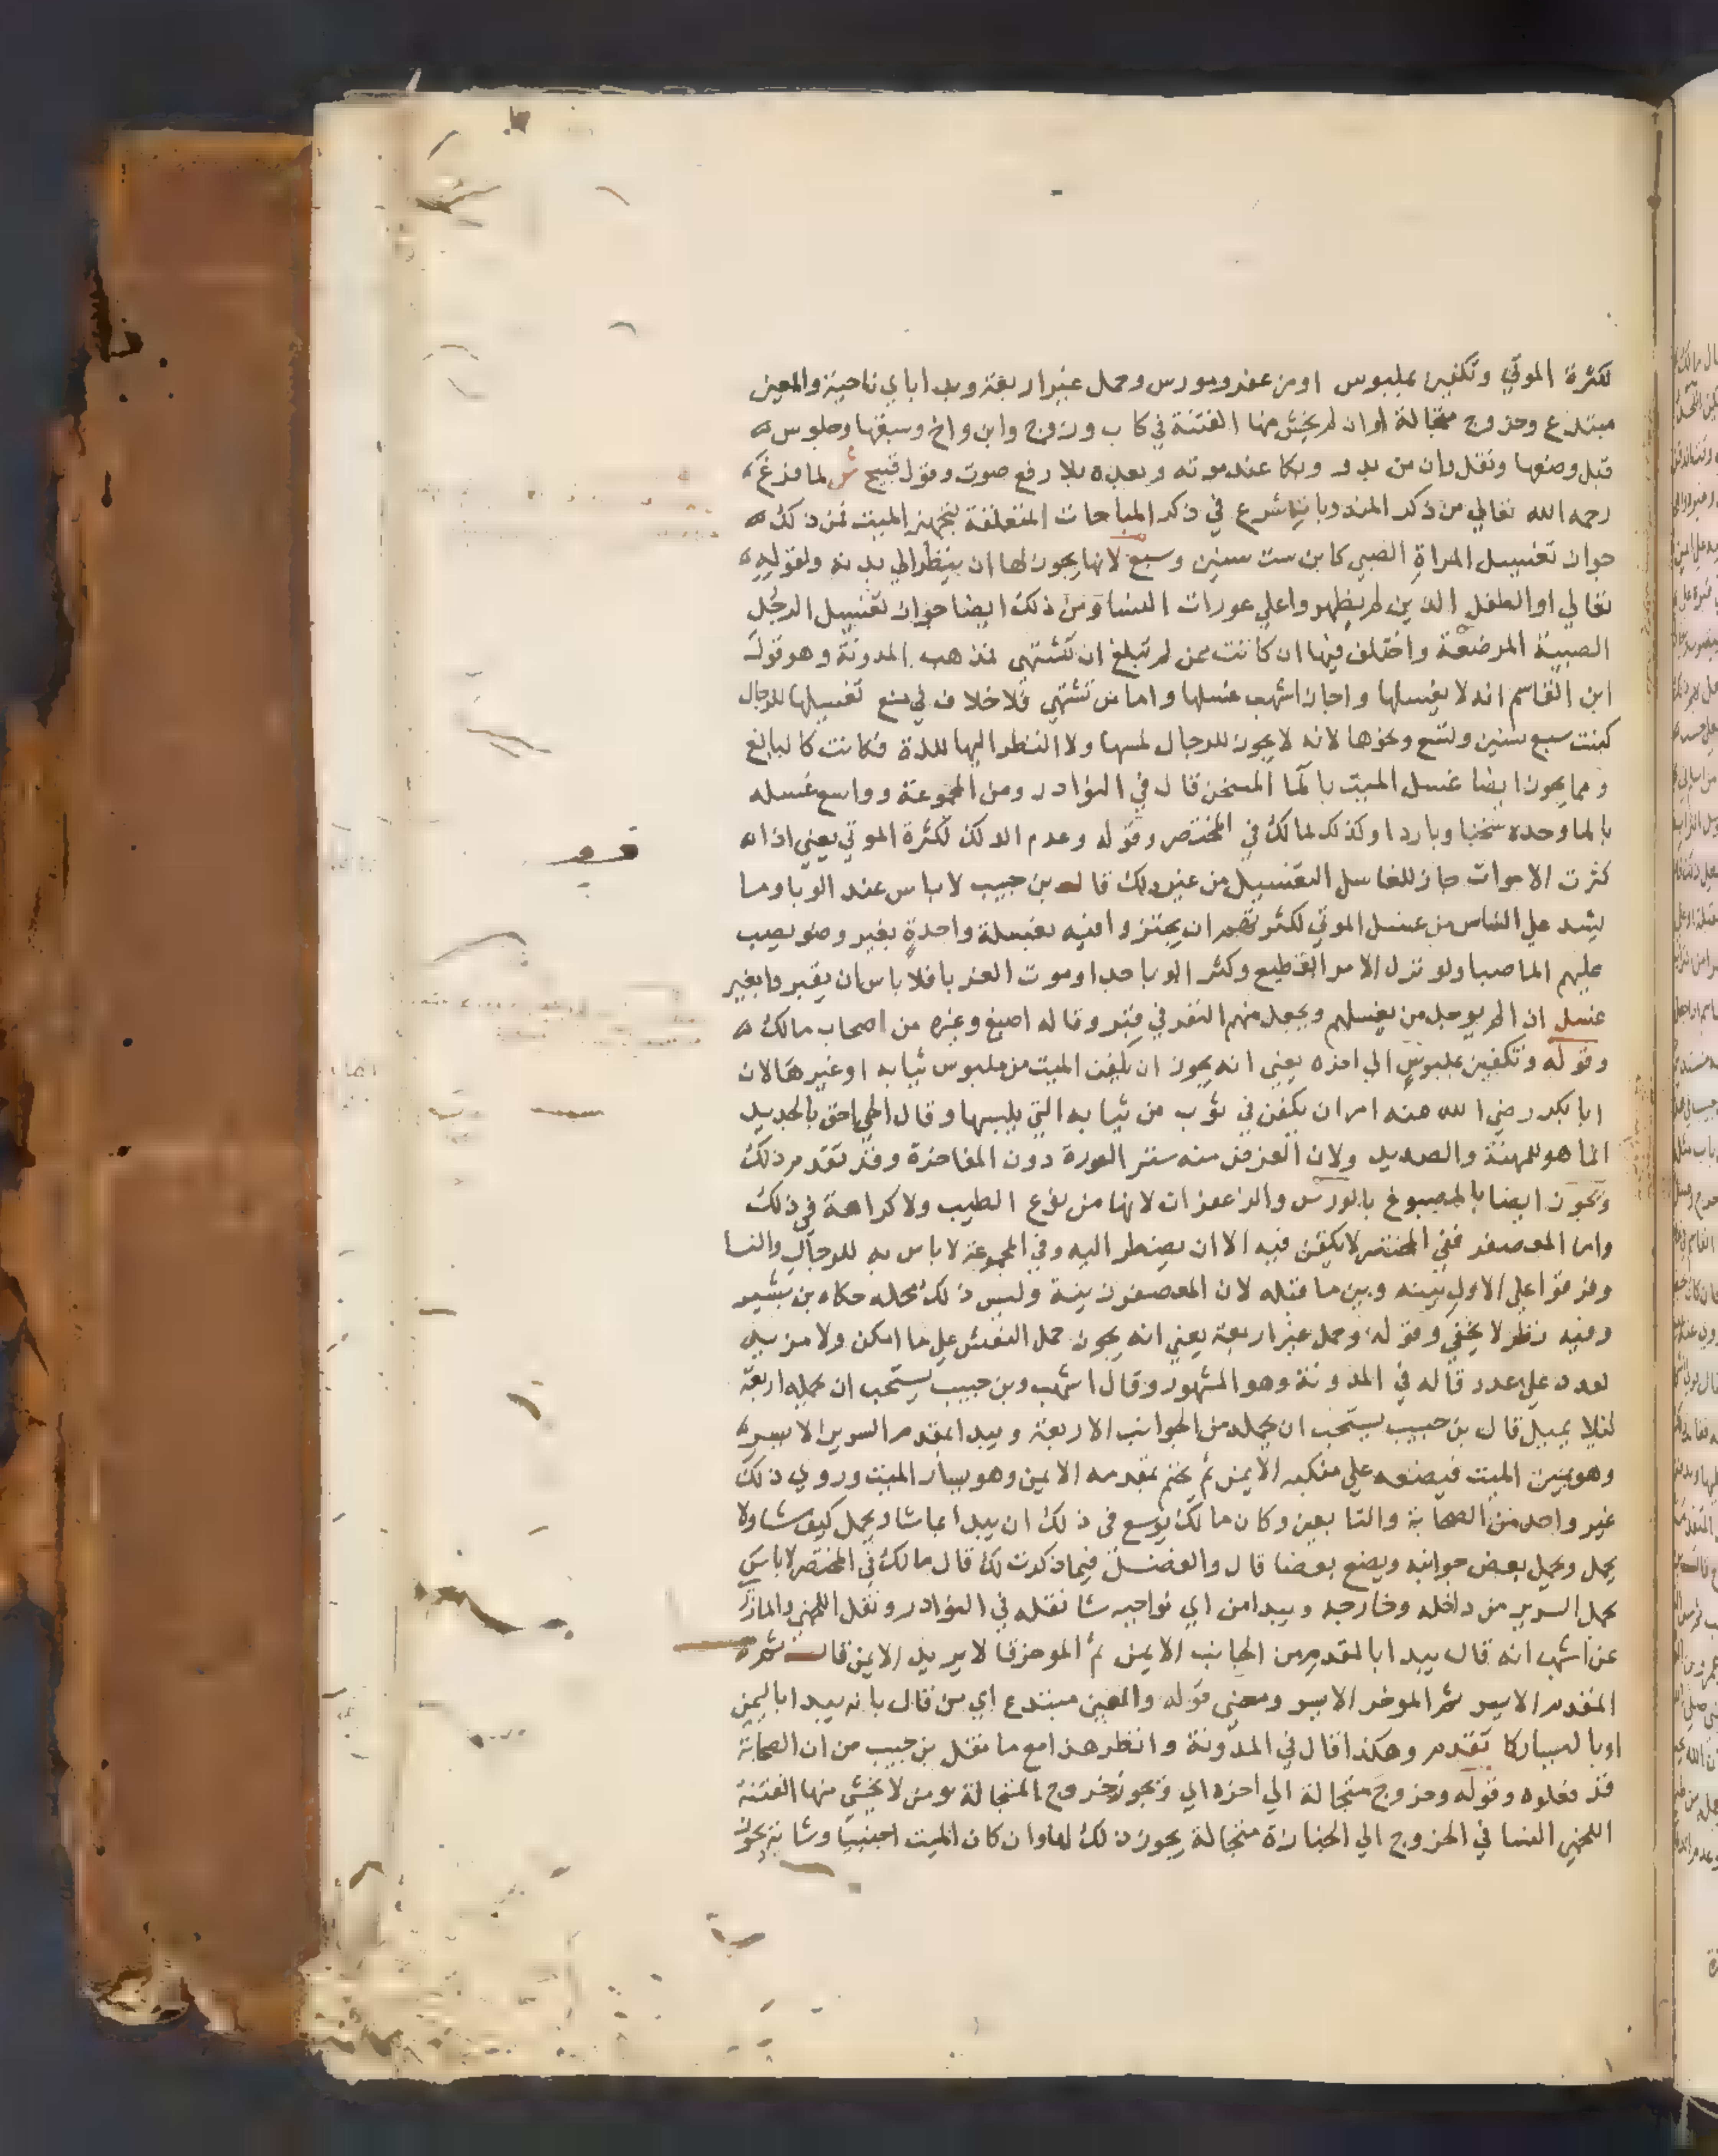 لكثرة الموتي وتكفين بملبوس اومزعفر ومورس وحمل غير اربعة وبدا باي ناحية والمعين
مبتدع وخروج متجالة اوان لم يخش منها الفتنة في كاب وزوج وابن واخ وسبقها وجلوس
قبل وضعها ونقل وان من بدو وبكا عند موته وبعده بلا رفع صوت وقول قبيح ش لما فرغ
رحمه الله تعالي من ذكر المندوبات شرع في ذكر المباحات المتعلقة بتجهيز الميت فمن ذلك
جواز تغسيل المراة الصبي كابن ست سنين وسبع لانها يجوز لها ان ينظر الي بدنه ولقوله
تعالي او الطفل الذين لم يظهروا علي عورات النسا ومن ذلك ايضا جواز تغسيل الرجل
الصبية المرضعة واختلف فيها ان كانت ممن لم تبلغ ان تشتهي فمذهب المدونة وهو قول
ابن القاسم انه لا يغسلها واجاز اشهب غسلها واما من تشتهي فلا خلاف في منع تغسيلها للرجال
كبنت سبع سنين وتسع ونحوها لانه لا يجوز للرجال لمسها ولا النظر اليها للذة فكانت كالبالغ
ومما يجوز ايضا غسل الميت بالما المسخن قال في النوادر ومن المجموعة وواسع غسله
بالما وحده سخنا وباردا وكذلك لمالك في المختصر وقوله وعدم الدلك لكثرة الموتي يعني اذا
كثرت الاموات جاز للغاسل التغسيل من غير دلك قاله بن حبيب لا باس عند الوبا وما
يشد علي الناس من غسل الموتي لكثرتهم ان يجتزوا فيه بغسلة واحدة بغير وضو يصب
عليهم الما صبا ولو نزل الامر الفظيع وكثر الوبا جدا وموت الغربا فلا باس ان يقبروا بغير
غسل ان لم يوجد من يغسلهم ويجعل منهم النفر في قبر وقاله اصبغ وغيره من اصحاب مالك
وقوله وتكفين بملبوس الي اخره يعني انه يجوز ان يكفن الميت من ملبوس ثيابه او غيرها لان
ابا بكر رضي الله عنه امر ان يكفن في ثوب من ثيابه التي يلبسها وقال الحي احق بالجديد
انما هو للمهنة والصديد ولان الغرض منه ستر العورة دون المفاخرة وقد تقدم ذلك
ويجوز ايضا بالمصبوغ بالورس والزعفران لانها من نوع الطيب ولا كراهة في ذلك
واما المعصفر ففي المختصر لا يكفن فيه الا ان يضطر اليه وفي المجموعة لا باس به للرجال والنسا
وفرقوا علي الاول بينه وبين ما قبله لان المعصفر زينة وليس ذلك محله حكاه بن بشير
وفيه نظر لا يخفي وقوله وحمل غير اربعة يعني انه يجوز حمل النعش علي ما امكن ولا مزية
لعدد علي عدد قاله في المدونة وهو المشهور وقال اشهب وبن حبيب يستحب ان يحمله اربعة
لئلا يميل قال بن حبيب يستحب ان يحمله من الجوانب الاربعة ويبدا بمقدم السرير الايسر
وهو يمين الميت فيضعه علي منكبه الايمن ثم يختم بمقدمه الايمن وهو يسار الميت وروي ذلك
غير واحد من الصحابة والتابعين وكان مالك يوسع في ذلك ان يبدا بما شا ويحمل كيف شا ولا
يحمل ويحمل بعض جوانبه ويضع بعضا قال والفضل فيما ذكرت لك قال مالك في المختصر لا باس
بحمل السرير من داخله وخارجه ويبدا من اي نواحيه شا نقله في النوادر ونقل اللخمي والمازري
عن اشهب انه قال يبدا بالمقدم من الجانب الايمن ثم الموخر قال يريد الايمن قال ثم
المقدم الايسر ثم الموخر الايسر ومعني قوله والمعين مبتدع اي من قال بانه يبدا باليمين
او باليسار كما تقدم وهكذا قال في المدونة وانظر هذا مع ما نقل بن حبيب من ان الصحابة
قد فعلوه وقوله وخروج متجالة الي اخره اي ويجوز خروج المتجالة ومن لا يخشي منها الفتنة
اللخمي النسا في الخروج الي الجنازة متجالة يجوز ذلك لها وان كان الميت اجنبيا وشابة يجوز